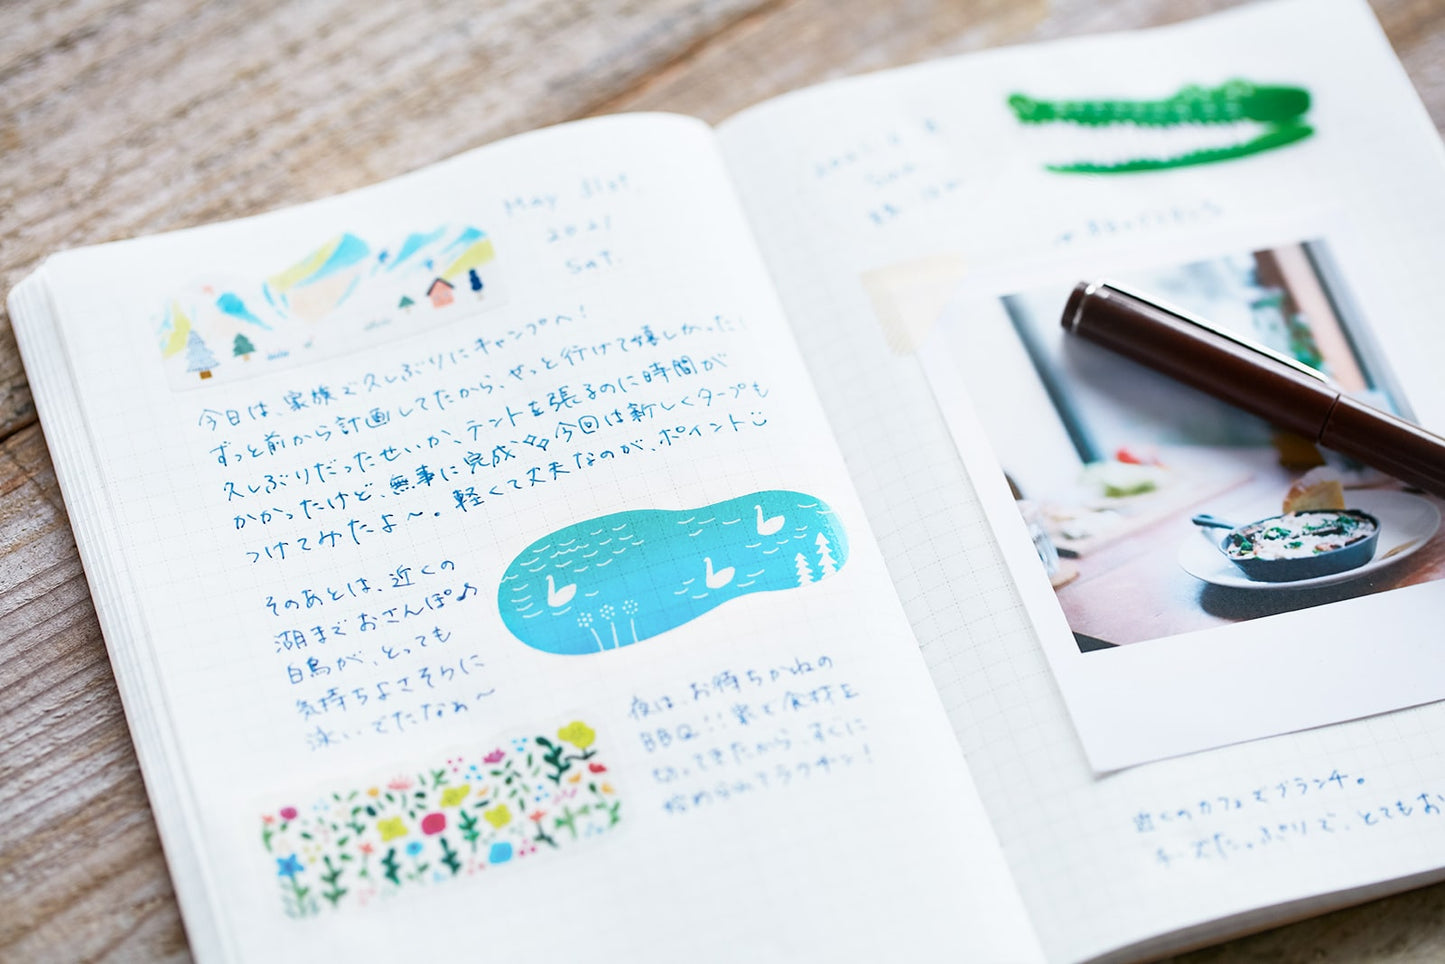 May 31st.
2021
Sat.
今日は、家族で久しぶりにキャンプへ!
ずっと前から計画してたから、やっと行けて嬉しかった!
久しぶりだったせいか、テントを張るのに時間が
かかったけど、無事に完成✨今回は新しくタープも
つけてみたよ〜。軽くて丈夫なのが、ポイント☺
そのあとは、近くの
湖までおさんぽ♪
白鳥が、とっても
気持ちよさそうに
泳いでたなぁ〜
夜は、お待ちかねの
BBQ!!家で食材を
切ってきたから、すぐに
始められてラクチン!
Sun
近くのカフェでブランチ。
チーズたっぷりで、とてもおい